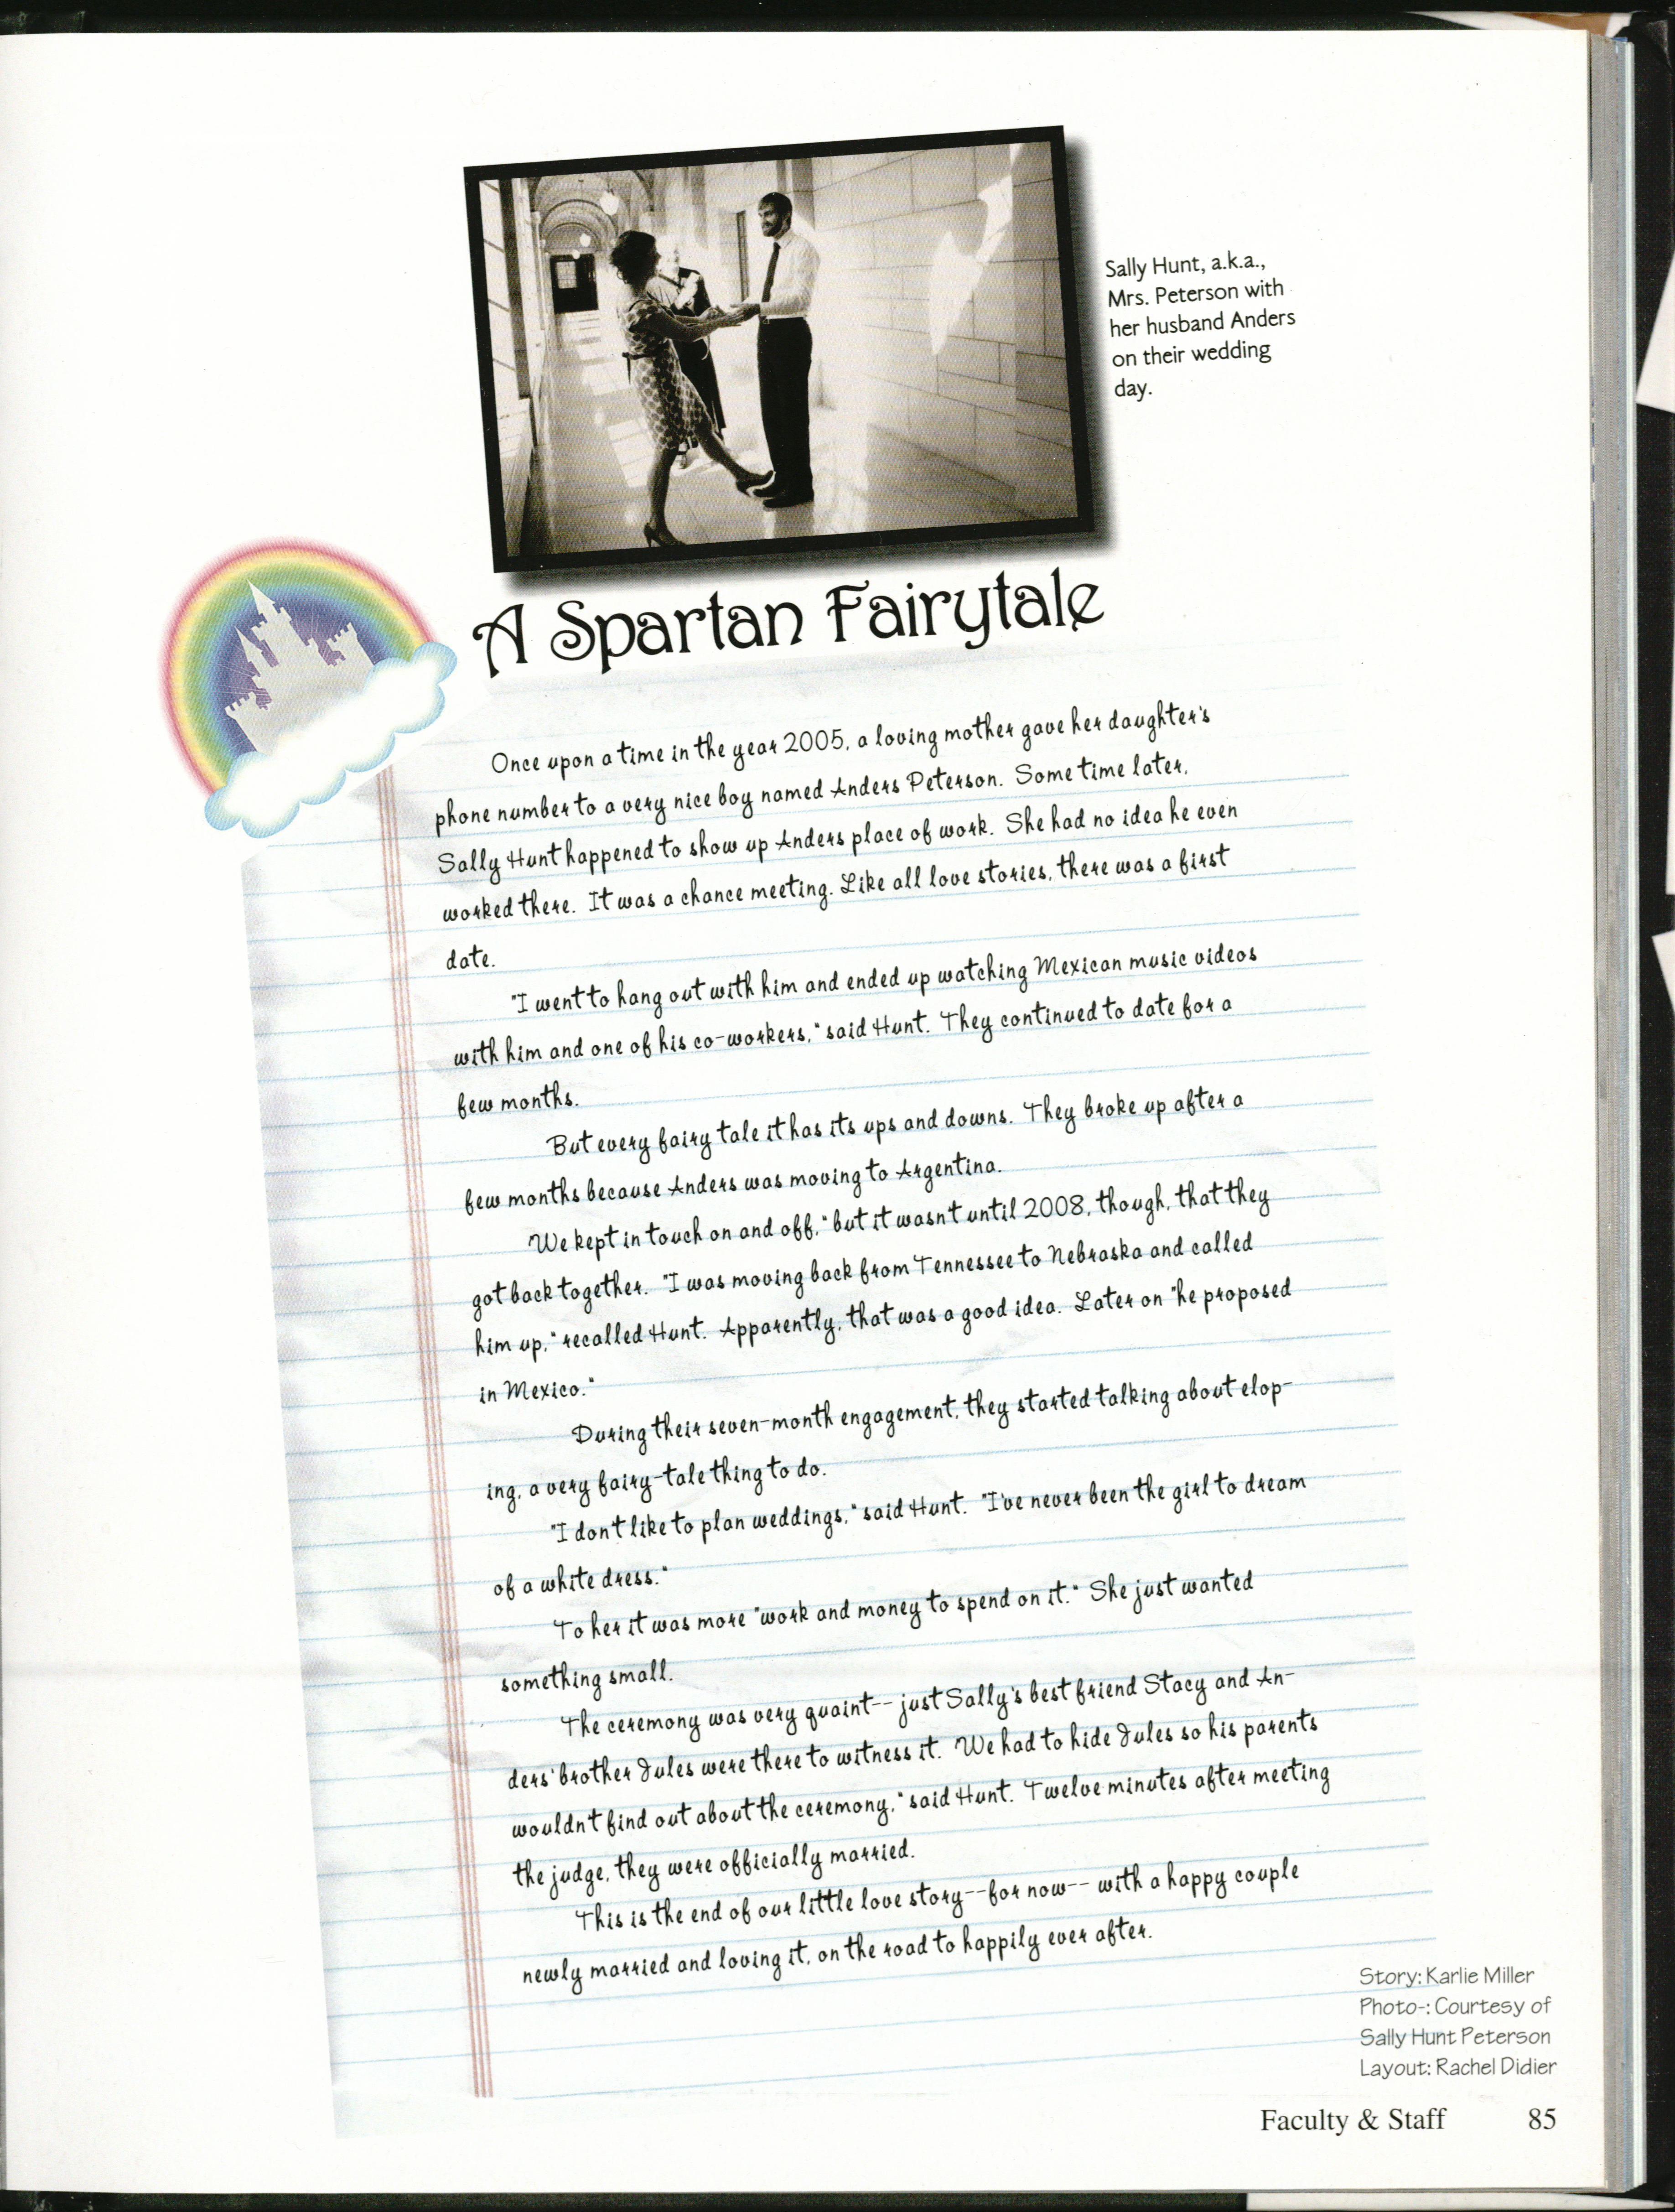 Sally Hunt, a.k.a.,
Mrs. Peterson with
her husband Anders
on their wedding
day.
A Spartan Fairytale
Once upon a time in the year 2005, a loving mother gave her daughter's
phone number to a very nice boy named Anders Peterson. Some time later,
Sally Hunt happened to show up Anders place of work. She had no idea he even
worked there. It was a chance meeting. Like all love stories, there was a first
date.
"I went to hang out with him and ended up watching Mexican music videos
with him and one of his co-workers," said Hunt. They continued to date for a
few months.
But every fairy tale it has its ups and downs. They broke up after a
few months because Anders was moving to Argentina.
We kept in touch on and off," but it wasn't until 2008, though, that they
got back together. "I was moving back from Tennessee to Nebraska and called
him up," recalled Hunt. Apparently, that was a good idea. Later on "he proposed
in Mexico."
During their seven-month engagement, they started talking about elop-
ing, a very fairy-tale thing to do.
"I don't like to plan weddings," said Hunt. "I've never been the girl to dream
of a white dress."
To her it was more "work and money to spend on it." She just wanted
something small.
The ceremony was very quaint-- just Sally's best friend Stacy and An-
ders' brother Jules were there to witness it. We had to hide Jules so his parents
wouldn't find out about the ceremony," said Hunt. Twelve minutes after meeting
the judge, they were officially married.
This is the end of our little love story--for now-- with a happy couple
newly married and loving it, on the road to happily ever after.
Story: Karlie Miller
Photo-: Courtesy of
Sally Hunt Peterson
Layout: Rachel Didier
Faculty & Staff 85